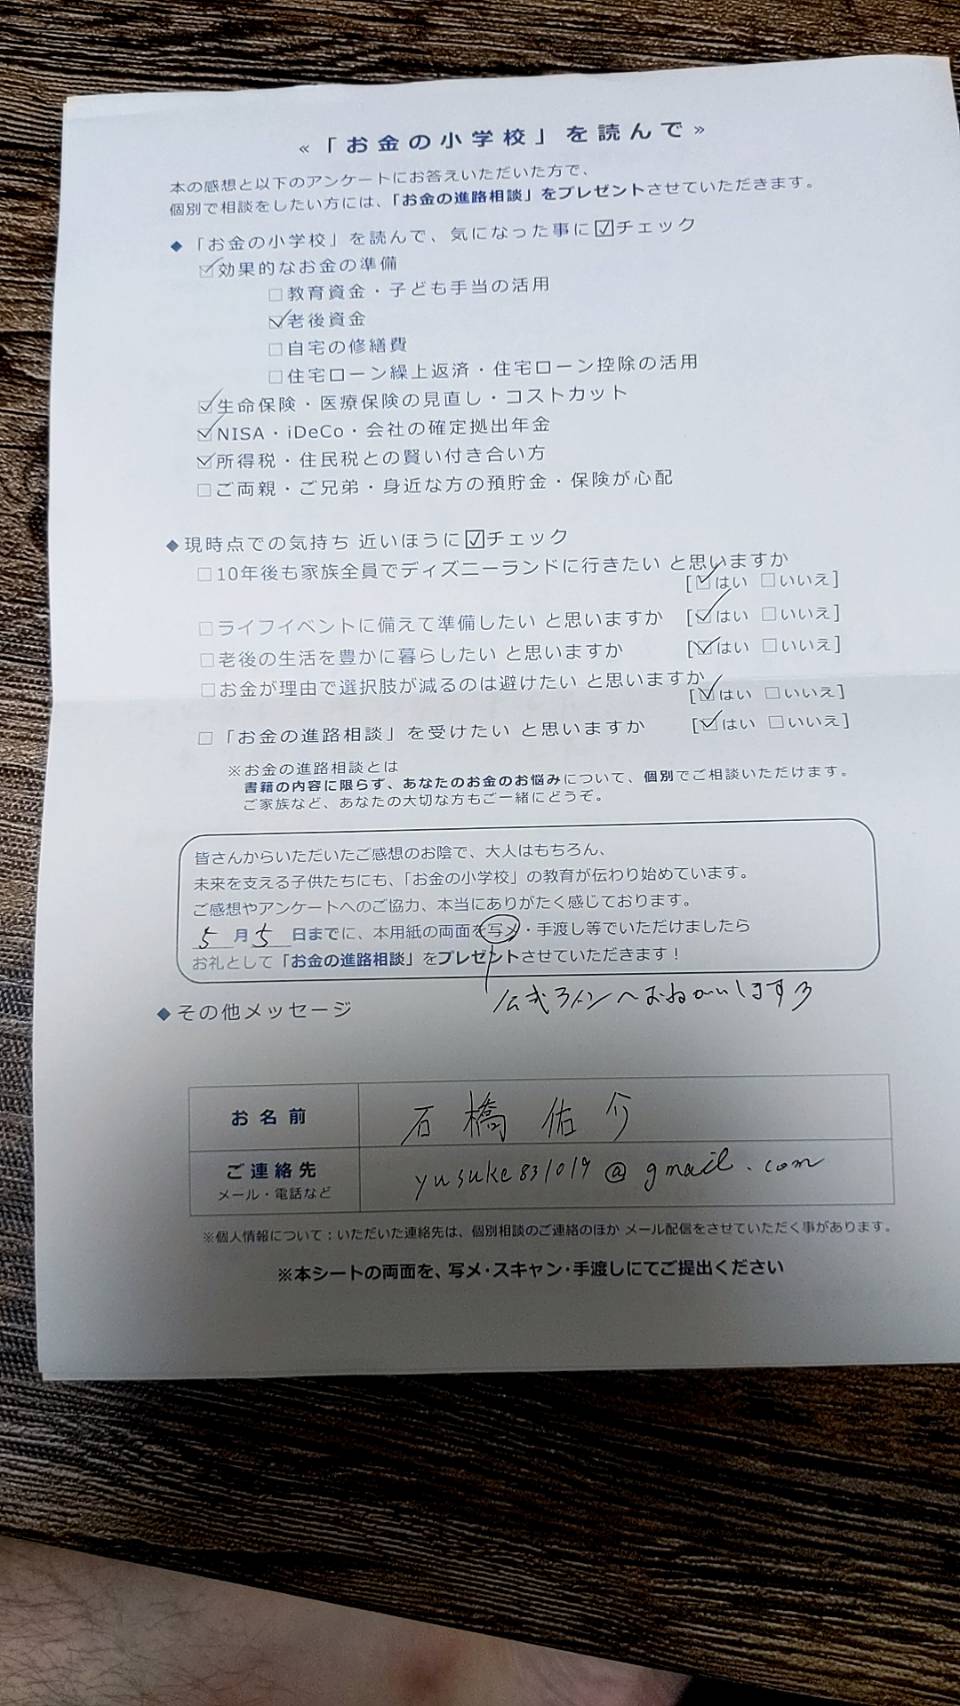 «「お金の小学校」を読んで»
本の感想と以下のアンケートにお答えいただいた方で、
個別で相談をしたい方には、「お金の進路相談」をプレゼントさせていただきます。
◆「お金の小学校」を読んで、気になった事に☑チェック
☑効果的なお金の準備
☐教育資金・子ども手当の活用
☑老後資金
☐自宅の修繕費
☐住宅ローン繰上返済・住宅ローン控除の活用
☑生命保険・医療保険の見直し・コストカット
☑NISA・iDeCo・会社の確定拠出年金
☑所得税・住民税との賢い付き合い方
☐ご両親・ご兄弟・身近な方の預貯金・保険が心配
◆現時点での気持ち 近いほうに☑チェック
☐10年後も家族全員でディズニーランドに行きたい と思いますか
[☑はい ☐いいえ]
☐ライフイベントに備えて準備したい と思いますか [☑はい ☐いいえ]
☐老後の生活を豊かに暮らしたい と思いますか [☑はい ☐いいえ]
☐お金が理由で選択肢が減るのは避けたい と思いますか
[☑はい ☐いいえ]
☐「お金の進路相談」を受けたい と思いますか [☑はい ☐いいえ]
※お金の進路相談とは
書籍の内容に限らず、あなたのお金のお悩みについて、個別でご相談いただけます。
ご家族など、あなたの大切な方もご一緒にどうぞ。
皆さんからいただいたご感想のお陰で、大人はもちろん、
未来を支える子供たちにも、「お金の小学校」の教育が伝わり始めています。
ご感想やアンケートへのご協力、本当にありがたく感じております。
5月5日までに、本用紙の両面を写メ・手渡し等でいただけましたら
お礼として「お金の進路相談」をプレゼントさせていただきます！
公式ラインへおねがいします
◆その他メッセージ
お名前 石橋 佑介
ご連絡先 yusuke831019@gmail.com
メール・電話など
※個人情報について：いただいた連絡先は、個別相談のご連絡のほか メール配信をさせていただく事があります。
※本シートの両面を、写メ・スキャン・手渡しにてご提出ください